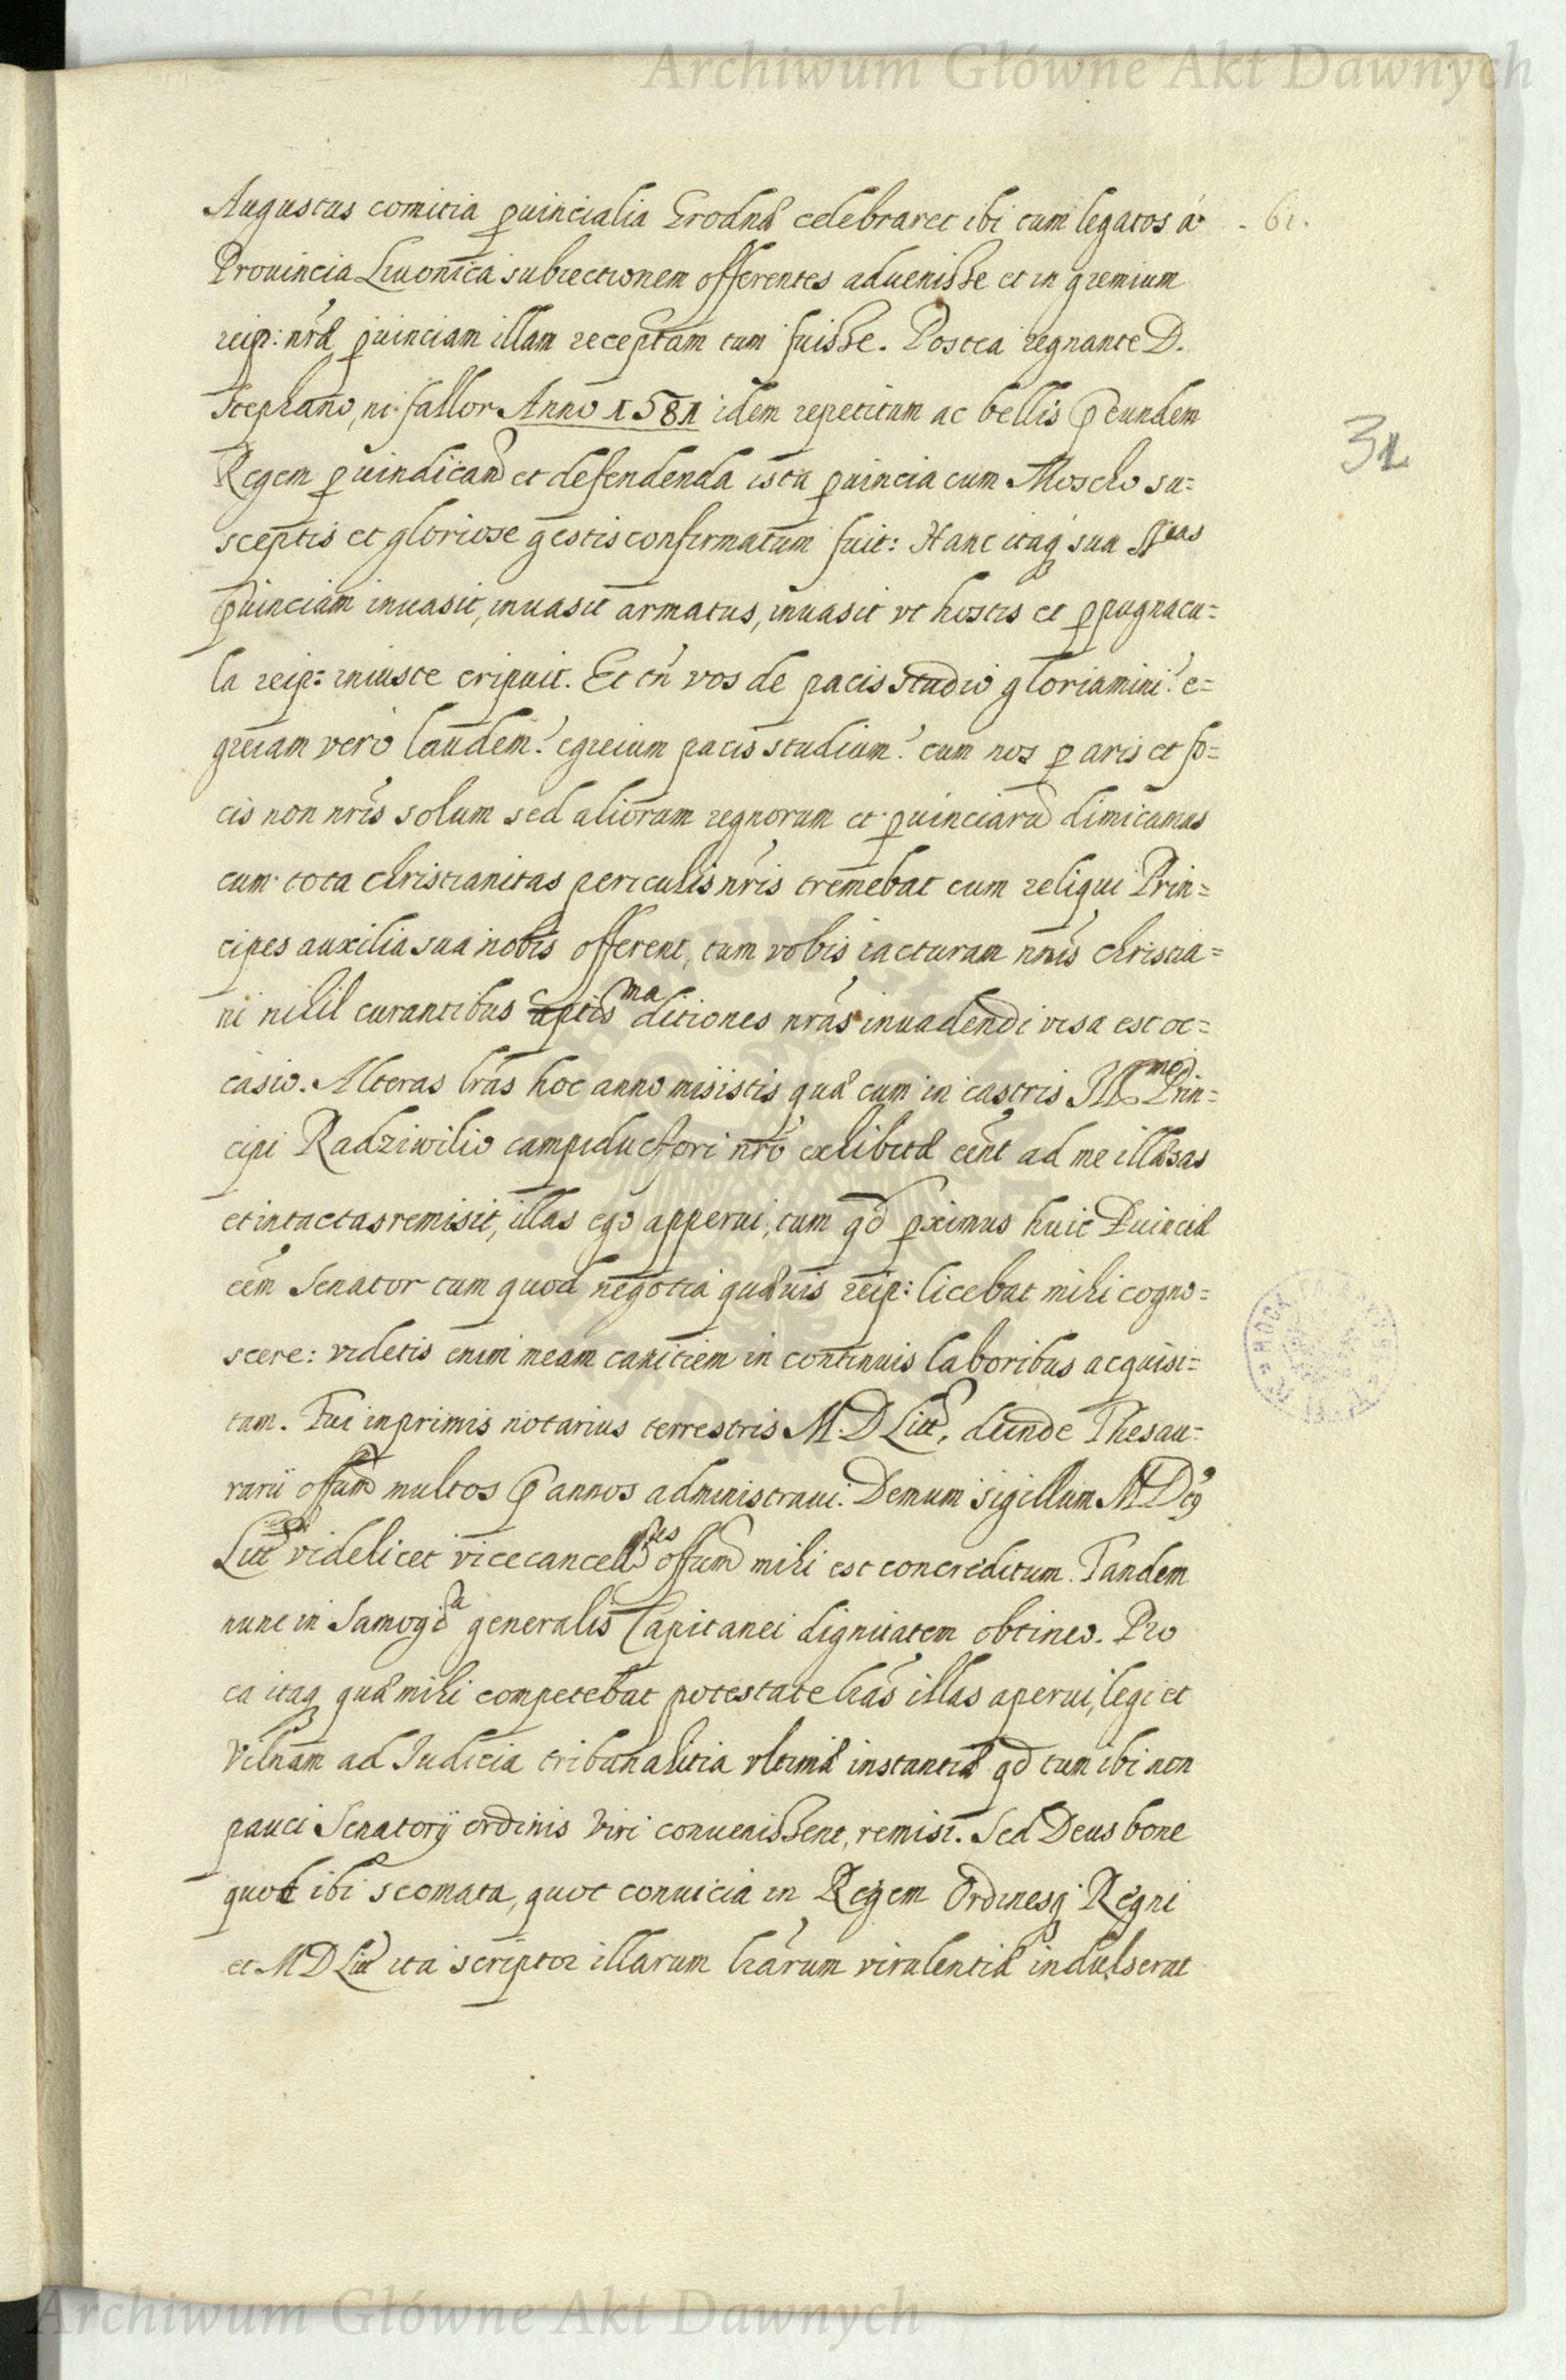 Archiwum Główne Akt Dawnych
Augustus comitia ꝓuincialia Grodnæ celebraret ibi tum legatos à
- 61.
Prouincia Liuonica subiectionem offerentes aduenisse et in gremium
reip: nræ ꝓuinciam illam receptam tum fuisse. Postea regnante D.
Stephano, ni fallor Anno 1581 idem repetitum ac bellis ꝑ eundem
31
Regem ꝓ uindicand et defendenda ista ꝓuincia cum Moscho su=
sceptis et gloriose gestis confirmatum fuit: Hanc itaq sua Sertas
ꝓuinciam inuasit, inuasit armatus, inuasit vt hostis et ꝓpugnacu=
la reip: iniuste eripuit. Et tn vos de pacis studio gloriamini? e=
greiam vero laudem! egreium pacis studium! cum nos ꝓ aris et fo=
cis non nris solum sed aliorum regnorum et ꝓuinciaru dimicamus
cum tota christianitas periculis nris tremebat cum reliqui Prin=
cipes auxilia sua nobis offerent, tum vobis iacturam nmis christia=
ni nihil curantibus aptisma ditiones nras inuadendi visa est oc=
casio. Alteras lras hoc anno misistis quæ cum in castris Illmo Prin=
cipi Radziwilio campiductori nro exhibitæ eent ad me illæsas
et intactas remisit, illas ego apperui, tum qd ꝓximus huic Ꝓuinciæ
eem Senator tum quod negotia quæuis reip: licebat mihi cogno=
scere: videtis enim meam canitiem in continuis laboribus acquisi=
tam. Fui inprimis notarius terrestris M. D Litt, deinde Thesau=
rarii offum multos ꝑ annos administraui. Demum sigillum M Dcꝰ
Litt videlicet vicecancellres offum mihi est concreditum. Tandem
nunc in Samogia generalis Capitanei dignitatem obtineo. Pro
ea itaq quæ mihi competebat potestate lras illas aperui, legi et
Vilnam ad Iudicia tribunalitia vltimæ instantiæ qd tum ibi non
pauci Senatorij ordinis Viri conuenissent, remisi. Sed Deus bone
quot ibi scomata, quot conuicia in Regem Ordinesq Regni
et M D Litt ita scriptor illarum lrarum virulentiæ indulserat
Archiwum Główne Akt Dawnych